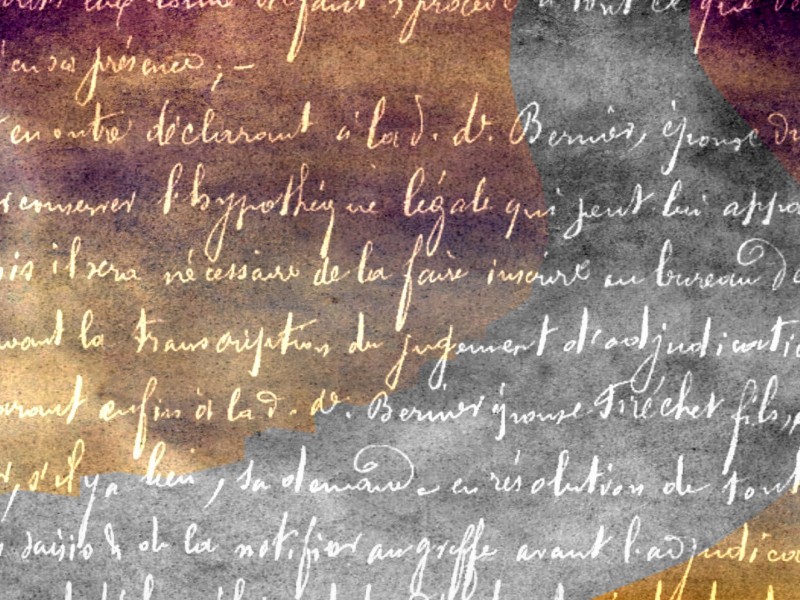 défaut procédé à tout ce que
en sa présence ; —
en outre déclarant à la d. de. Bernier, épouse
conserver l'hypothèque légale qui peut lui
il sera nécessaire de la faire inscrire au bureau
la transcription du jugement d'adjudicatio
enfin à la d. de. Bernier épouse Fréchet fils,
s'il y a lieu, sa demande en résolution de tout
de la notifier au greffe avant l'adjudica